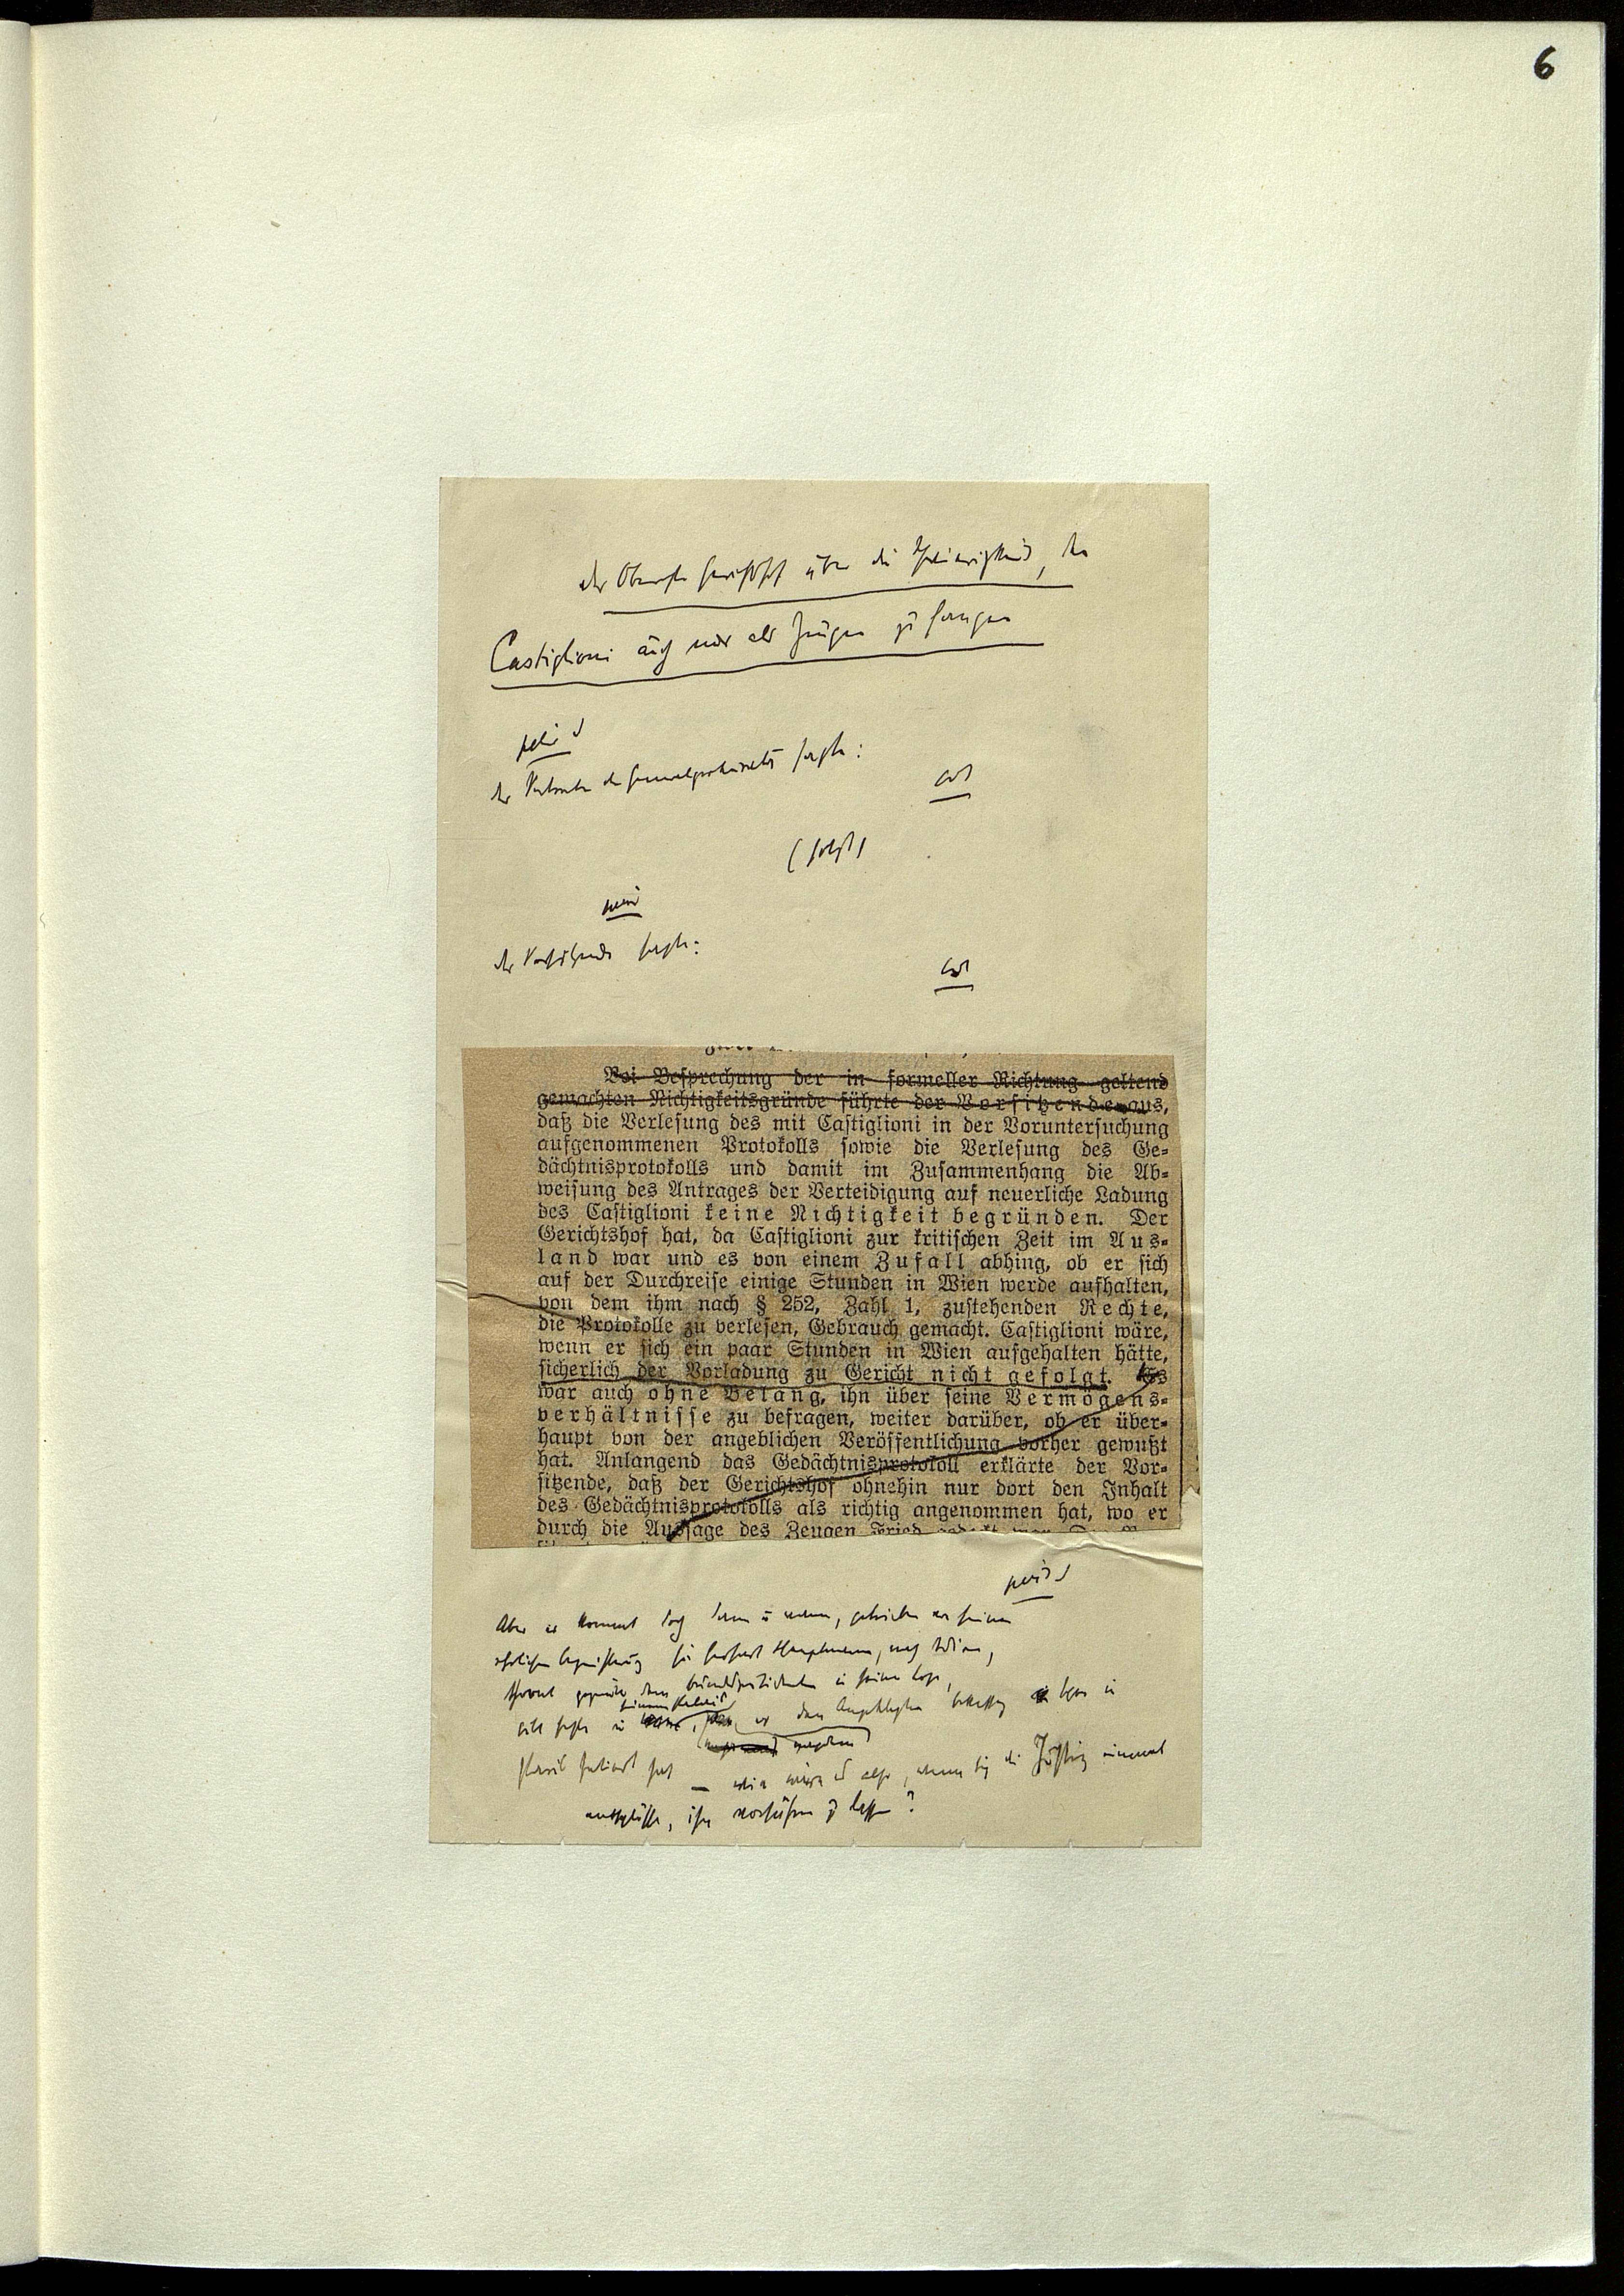 6
der Oberste Gerichtshof über die Schwierigkeit, den
Castiglioni auch nur als Zeugen zu fangen
Der Vertreter der Generalprokuratur sagte:
(folgt)
Der Vorsitzende sagte:
Bei Besprechung der in formeller Richtung geltend
gemachten Nichtigkeitsgründe führte der Vorsitzende aus,
daß die Verlesung des mit Castiglioni in der Voruntersuchung
aufgenommenen Protokolls sowie die Verlesung des Ge-
dächtnisprotokolls und damit im Zusammenhang die Ab-
weisung des Antrages der Verteidigung auf neuerliche Ladung
des Castiglioni keine Nichtigkeit begründen. Der
Gerichtshof hat, da Castiglioni zur kritischen Zeit im Aus-
land war und es von einem Zufall abhing, ob er sich
auf der Durchreise einige Stunden in Wien werde aufhalten,
von dem ihm nach § 252, Zahl 1, zustehenden Rechte,
die Protokolle zu verlesen, Gebrauch gemacht. Castiglioni wäre,
wenn er sich ein paar Stunden in Wien aufgehalten hätte,
sicherlich der Vorladung zu Gericht nicht gefolgt. Es
war auch ohne Belang, ihn über seine Vermögens-
verhältnisse zu befragen, weiter darüber, ob er über-
haupt von der angeblichen Veröffentlichung vorher gewußt
hat. Anlangend das Gedächtnisprotokoll erklärte der Vor-
sitzende, daß der Gerichtshof ohnehin nur dort den Inhalt
des Gedächtnisprotokolls als richtig angenommen hat, wo er
durch die Aussage des Zeugen Fried gedeckt war.
Aber er kommt doch dann u wann, getrieben von seiner
ehrlichen Begeisterung für Gerhart Hauptmann, nach Wien,
thront gegenüber dem Bundespräsidenten in seiner Loge,
gibt Feste in seinem Palais
— wie wäre es also, wenn sich die Justiz einmal
entschlösse, ihn vorführen zu lassen?